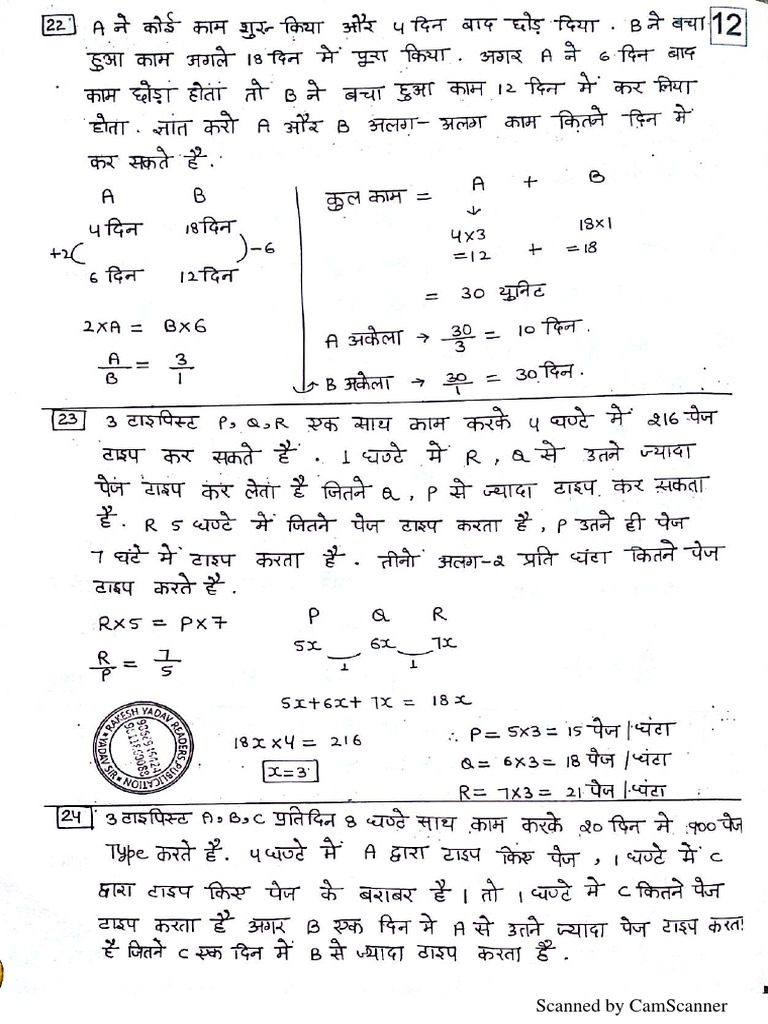 12
22 A ने कोई काम शुरू किया और 4 दिन बाद छोड़ दिया. B ने बचा
हुआ काम अगले 18 दिन में पूरा किया. अगर A ने 6 दिन बाद
काम छोड़ा होता तो B ने बचा हुआ काम 12 दिन में कर लिया
होता. ज्ञात करो A और B अलग-अलग काम कितने दिन में
कर सकते है.
A B
4 दिन 18 दिन
+2( )-6
6 दिन 12 दिन
2×A = B×6
A/B = 3/1
कुल काम = A + B
↓
4×3 18×1
=12 + =18
= 30 यूनिट
A अकेला → 30/3 = 10 दिन.
B अकेला → 30/1 = 30 दिन.
23 3 टाइपिस्ट P, Q, R एक साथ काम करके 4 घण्टे में 216 पेज
टाइप कर सकते है. 1 घण्टे में R, Q से उतने ज्यादा
पेज टाइप कर लेता है जितने Q, P से ज्यादा टाइप कर सकता
है. R 5 घण्टे में जितने पेज टाइप करता है, P उतने ही पेज
7 घंटे में टाइप करता है. तीनो अलग-2 प्रति घंटा कितने पेज
टाइप करते है.
R×5 = P×7
R/P = 7/5
P Q R
5x 6x 7x
1 1
5x+6x+7x = 18x
18x×4 = 216
x=3
∴ P= 5×3= 15 पेज/घंटा
Q= 6×3= 18 पेज/घंटा
R= 7×3= 21 पेज/घंटा
RAKESH YADAV READERS PUBLICATION
YADAV SIR
24 3 टाइपिस्ट A, B, C प्रतिदिन 8 घण्टे साथ काम करके 20 दिन मे 900 पेज
Type करते है. 4 घण्टे में A द्वारा टाइप किए पेज, 1 घण्टे में C
द्वारा टाइप किए पेज के बराबर है। तो 1 घण्टे मे C कितने पेज
टाइप करता है अगर B एक दिन मे A से उतने ज्यादा पेज टाइप करता
है जितने C एक दिन में B से ज्यादा टाइप करता है.
Scanned by CamScanner